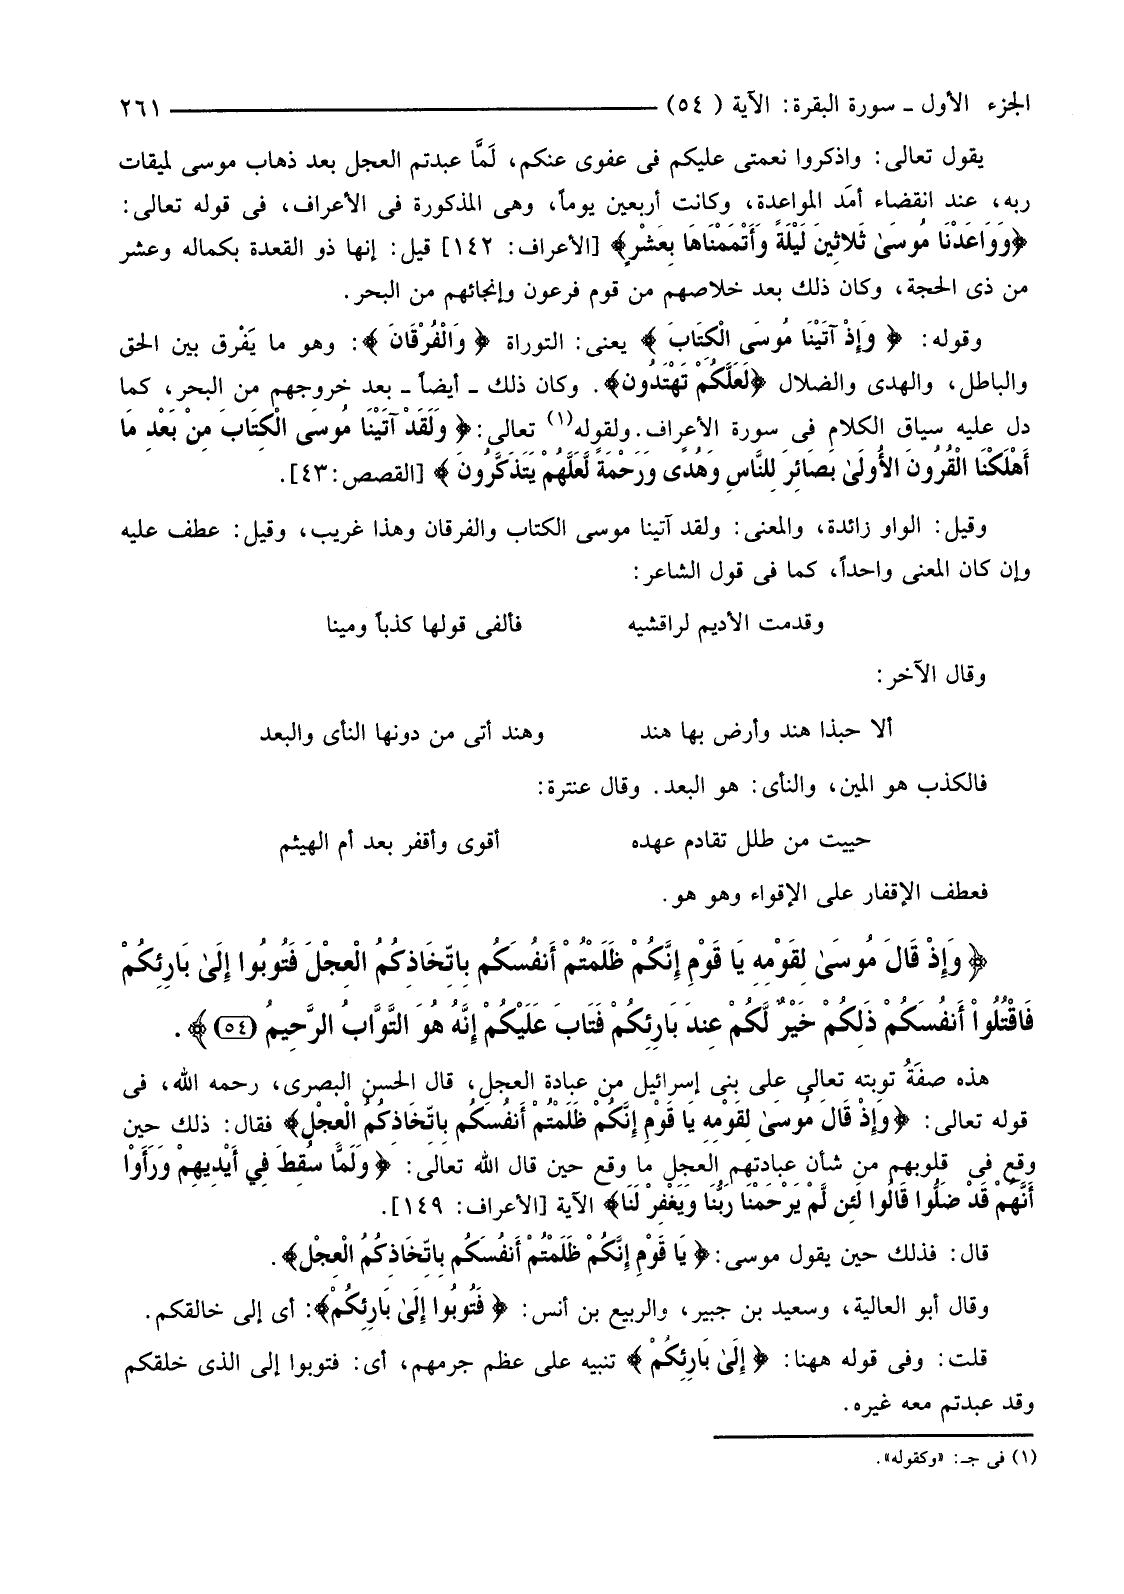 الجزء الأول ـ سورة البقرة: الآية ( ٥٤) ٢٦١
يقول تعالى: واذكروا نعمتى عليكم فى عفوى عنكم، لَمَّا عبدتم العجل بعد ذهاب موسى لميقات
ربه، عند انقضاء أمَد المواعدة، وكانت أربعين يوماً، وهى المذكورة فى الأعراف، فى قوله تعالى:
﴿وَوَاعَدْنَا مُوسَىٰ ثَلاثِينَ لَيْلَةً وَأَتْمَمْنَاهَا بِعَشْرٍ﴾ [الأعراف: ١٤٢] قيل: إنها ذو القعدة بكماله وعشر
من ذى الحجة، وكان ذلك بعد خلاصهم من قوم فرعون وإنجائهم من البحر.
وقوله: ﴿ وَإِذْ آتَيْنَا مُوسَى الْكِتَابَ ﴾ يعنى: التوراة ﴿ وَالْفُرْقَانَ ﴾: وهو ما يَفْرق بين الحق
والباطل، والهدى والضلال ﴿لَعَلَّكُمْ تَهْتَدُون﴾. وكان ذلك ـ أيضاً ـ بعد خروجهم من البحر، كما
دل عليه سياق الكلام فى سورة الأعراف. ولقوله(١) تعالى:﴿ وَلَقَدْ آتَيْنَا مُوسَى الْكِتَابَ مِنْ بَعْدِ مَا
أَهْلَكْنَا الْقُرُونَ الأُولَىٰ بَصَائِرَ لِلنَّاسِ وَهُدًى وَرَحْمَةً لَّعَلَّهُمْ يَتَذَكَّرُونَ ﴾ [القصص:٤٣].
وقيل: الواو زائدة، والمعنى: ولقد آتينا موسى الكتاب والفرقان وهذا غريب، وقيل: عطف عليه
وإن كان المعنى واحداً، كما فى قول الشاعر:
وقدمت الأديم لراقشيه فألفى قولها كذباً ومينا
وقال الآخر:
ألا حبذا هند وأرض بها هند وهند أتى من دونها النأى والبعد
فالكذب هو المين، والنأى: هو البعد. وقال عنترة:
حييت من طلل تقادم عهده أقوى وأقفر بعد أم الهيثم
فعطف الإقفار على الإقواء وهو هو.
﴿ وَإِذْ قَالَ مُوسَىٰ لِقَوْمِهِ يَا قَوْمِ إِنَّكُمْ ظَلَمْتُمْ أَنفُسَكُم بِاتِّخَاذِكُمُ الْعِجْلَ فَتُوبُوا إِلَىٰ بَارِئِكُمْ
فَاقْتُلُوا أَنفُسَكُمْ ذَلِكُمْ خَيْرٌ لَّكُمْ عِندَ بَارِئِكُمْ فَتَابَ عَلَيْكُمْ إِنَّهُ هُوَ التَّوَّابُ الرَّحِيمُ (٥٤)﴾.
هذه صفَةُ توبته تعالى على بنى إسرائيل من عبادة العجل، قال الحسن البصرى، رحمه الله، فى
قوله تعالى: ﴿ وَإِذْ قَالَ مُوسَىٰ لِقَوْمِهِ يَا قَوْمِ إِنَّكُمْ ظَلَمْتُمْ أَنفُسَكُم بِاتِّخَاذِكُمُ الْعِجْل﴾ فقال: ذلك حين
وقع فى قلوبهم من شأن عبادتهم العجل ما وقع حين قال الله تعالى: ﴿ وَلَمَّا سُقِطَ فِي أَيْدِيهِمْ وَرَأَوْا
أَنَّهُمْ قَدْ ضَلُّوا قَالُوا لَئِن لَّمْ يَرْحَمْنَا رَبُّنَا وَيَغْفِرْ لَنَا﴾ الآية [الأعراف: ١٤٩].
قال: فذلك حين يقول موسى:﴿ يَا قَوْمِ إِنَّكُمْ ظَلَمْتُمْ أَنفُسَكُم بِاتِّخَاذِكُمُ الْعِجْلِ﴾.
وقال أبو العالية، وسعيد بن جبير، والربيع بن أنس: ﴿ فَتُوبُوا إِلَىٰ بَارِئِكُمْ﴾: أى إلى خالقكم.
قلت: وفى قوله ههنا: ﴿ إِلَىٰ بَارِئِكُمْ ﴾ تنبيه على عظم جرمهم، أى: فتوبوا إلى الذى خلقكم
وقد عبدتم معه غيره.
(١) فى جـ: «وكقوله».